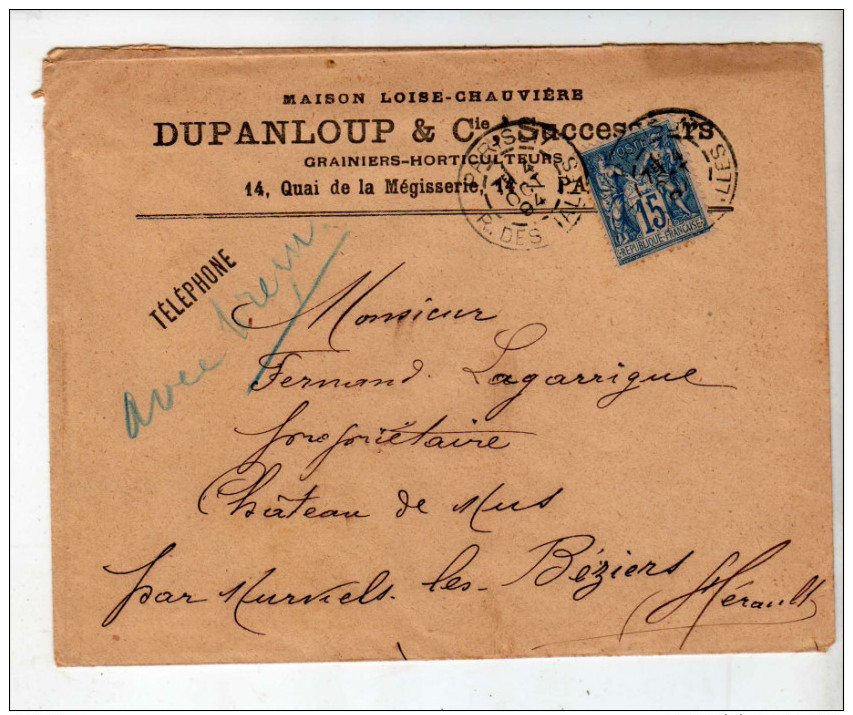 MAISON LOISE-CHAUVIÈRE
DUPANLOUP & Cie, Successeurs
GRAINIERS-HORTICULTEURS
14, Quai de la Mégisserie, 14 PA
PARIS
R. DES HALLES
15
REPUBLIQUE FRANÇAISE
TÉLÉPHONE
avec
Monsieur
Fernand Lagarrigue
propriétaire
Château de Mus
par Murviels-les-Béziers
Hérault